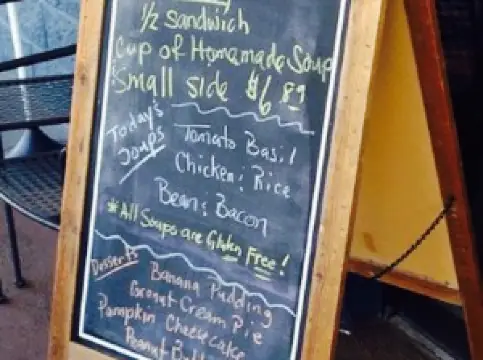 1/2 sandwich
Cup of Homemade Soup
Small side $6.89
Today's Soups
Tomato Basil
Chicken & Rice
Bean & Bacon
*All Soups are Gluten Free!
Desserts
Banana Pudding
Cream Pie
Pumpkin Cheesecake
Peanut